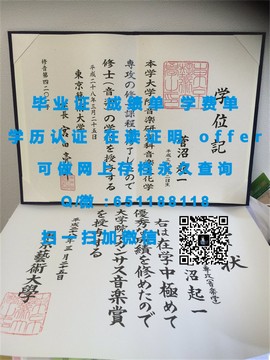 学位記
菅沼起一
本学大学院音楽研究科音楽文化学
専攻の修士課程を修了したので
修士（音楽）の学位を授与する
平成二十八年三月二十五日
東京藝
毕业证 成绩单 学费单
学历认证 在读证明 offer
可做网上存档永久查询
Q/微:651188118
扫一扫加微信
状
沼起一
右は在学中極めて
優秀な成績を修めたので
大学院アカンサス音楽賞
を授与する
東京藝術大学